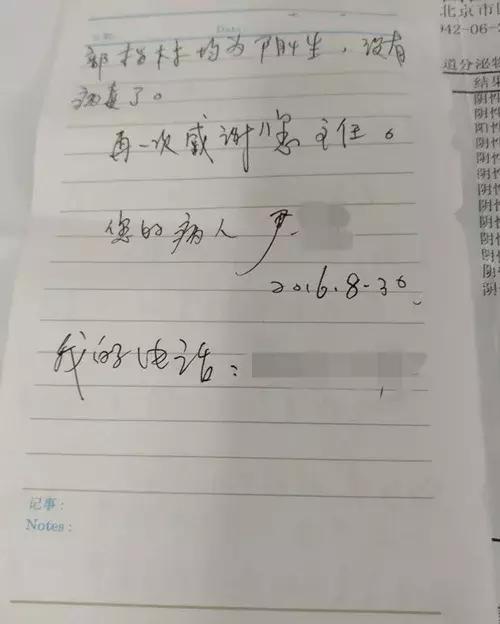 Date
部检核均为阴性,没有
病毒了。
再一次感谢您 主任。
您的病人 尹
2016.8-30
我的电话:
记事:
Notes:
北京市
042-06-
道分泌物
结果
阴性
阴性
阴性
阴性
阴性
阴性
阴性
阴性
阴性
阴性